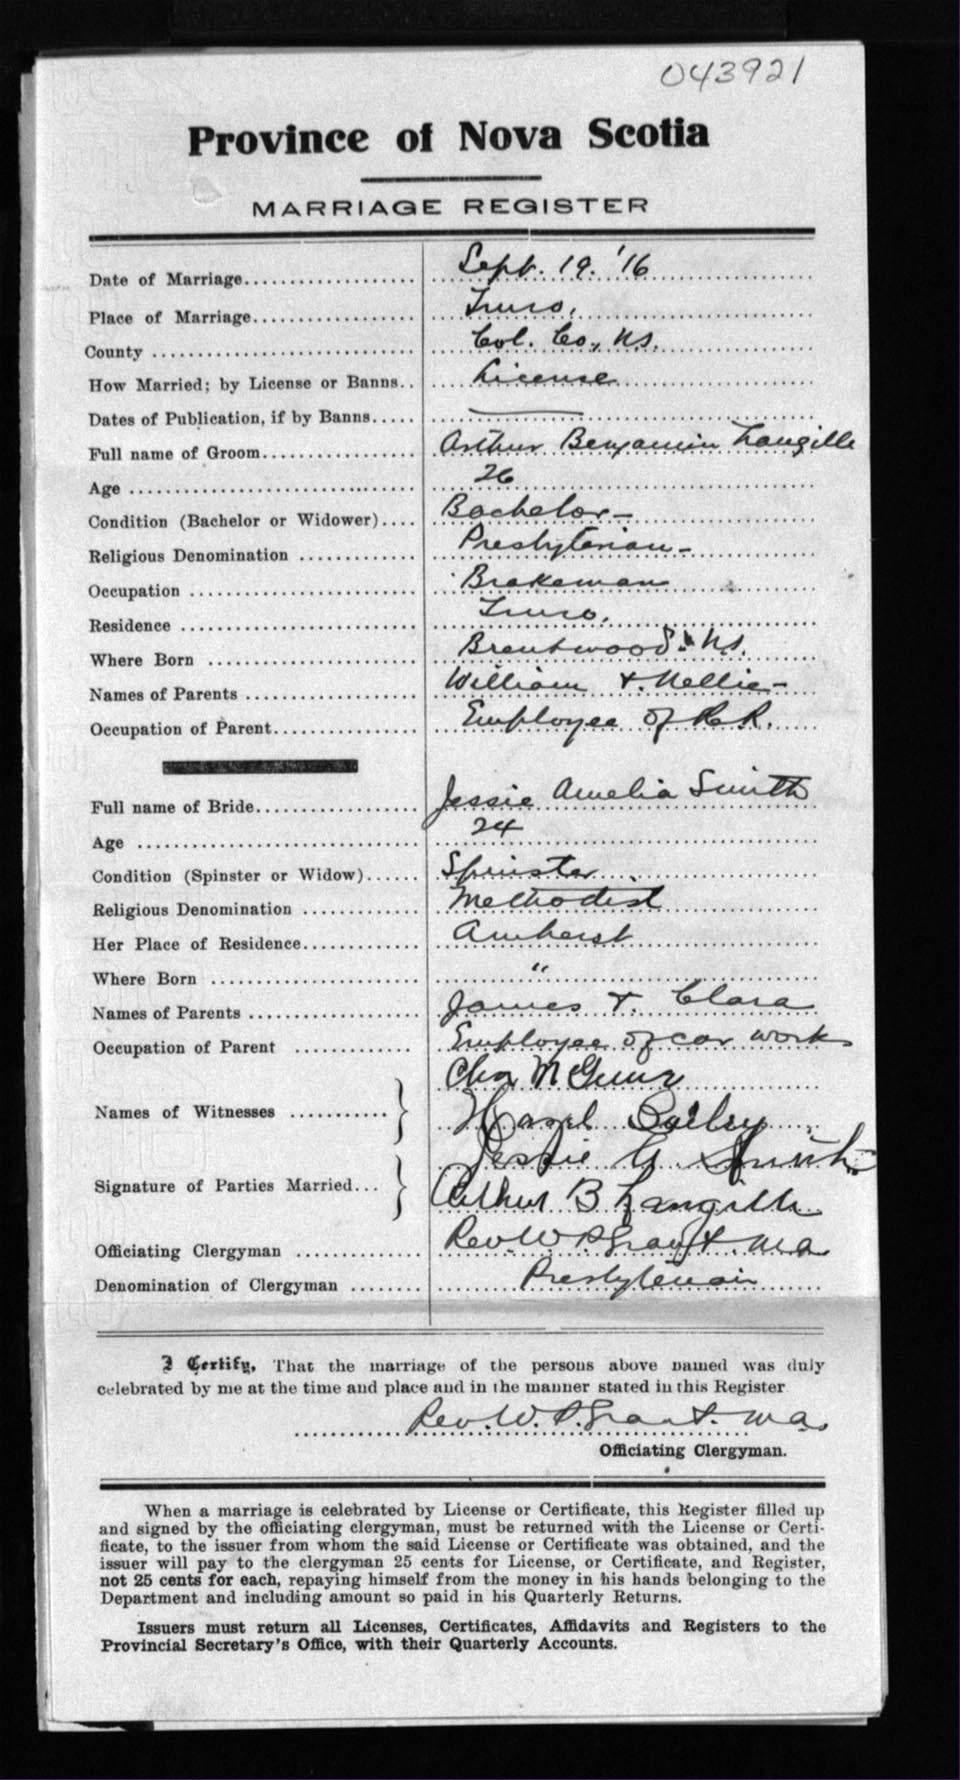 043921
Province of Nova Scotia
MARRIAGE REGISTER
Date of Marriage Sept. 19. '16
Place of Marriage Truro,
County Col. Co., N.S.
How Married; by License or Banns License
Dates of Publication, if by Banns —
Full name of Groom Arthur Benjamin Langille
Age 26
Condition (Bachelor or Widower) Bachelor –
Religious Denomination Presbyterian –
Occupation Brakeman
Residence Truro.
Where Born Brentwood N.S.
Names of Parents William & Nellie –
Occupation of Parent Employee of R.R.
Full name of Bride Jessie Amelia Smith
Age 24
Condition (Spinster or Widow) Spinster
Religious Denomination Methodist
Her Place of Residence Amherst
Where Born "
Names of Parents James & Clara
Occupation of Parent Employee of car works
Names of Witnesses Chas
Hazel Bailey
Signature of Parties Married Jessie A. Smith
Arthur B Langille
Officiating Clergyman Rev. W. P. Grant. M.A.
Denomination of Clergyman Presbyterian
I Certify, That the marriage of the persons above named was duly
celebrated by me at the time and place and in the manner stated in this Register
Rev. W. P. Grant. M.A.
Officiating Clergyman.
When a marriage is celebrated by License or Certificate, this Register filled up
and signed by the officiating clergyman, must be returned with the License or Certi-
ficate, to the issuer from whom the said License or Certificate was obtained, and the
issuer will pay to the clergyman 25 cents for License, or Certificate, and Register,
not 25 cents for each, repaying himself from the money in his hands belonging to the
Department and including amount so paid in his Quarterly Returns.
Issuers must return all Licenses, Certificates, Affidavits and Registers to the
Provincial Secretary's Office, with their Quarterly Accounts.